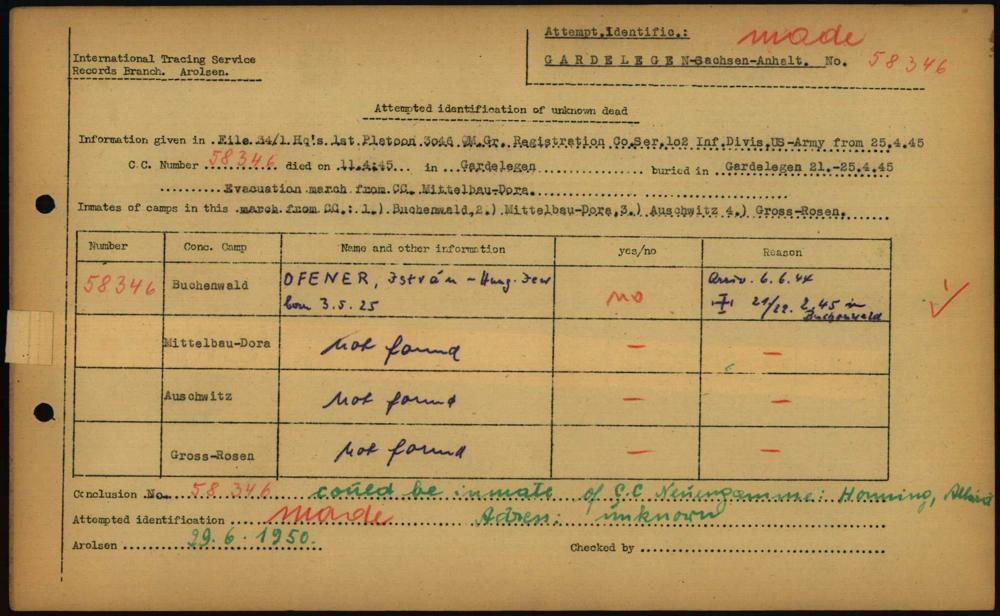 International Tracing Service
Records Branch. Arolsen.
Attempt.Identific.: made
GARDELEGEN-Sachsen-Anhalt. No. 58346
Attempted identification of unknown dead
Information given in File 34/1 Hq's 1st Pletoon 3046 QM.Gr. Registration Co.Ser.1o2 Inf.Divis.US-Army from 25.4.45
C.C. Number 58346 died on 11.4.45 in Gardelegen buried in Gardelegen 21.-25.4.45
Evacuation march from CC. Mittelbau-Dora.
Inmates of camps in this march from CC.: 1.) Buchenwald,2.) Mittelbau-Dora,3.) Auschwitz 4.) Gross-Rosen.
Number Conc. Camp Name and other information yes/no Reason
58346 Buchenwald OFENER, István - Hung. Jew no Arriv. 6.6.44
born 3.5.25 21/22. 2.45 in
Buchenwald
Mittelbau-Dora Not found — —
Auschwitz Not found — —
Gross-Rosen Not found — —
Conclusion No. 58 346 could be inmate of C.C. Neuengamme:
Attempted identification made Adress: unknown
Arolsen 29.6.1950. Checked by